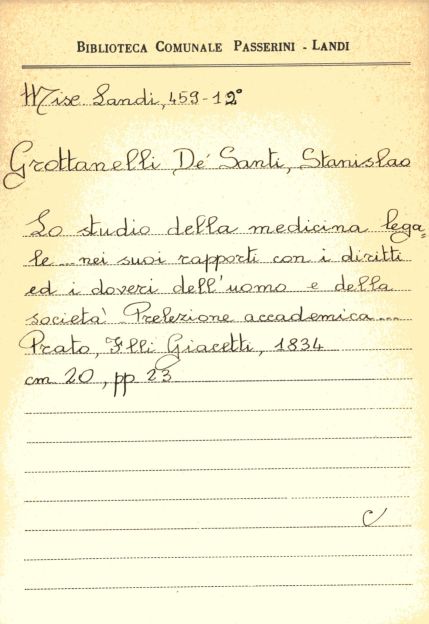 BIBLIOTECA COMUNALE PASSERINI - LANDI
Misc Landi, 459-12°
Grottanelli De' Santi, Stanislao
Lo studio della medicina lega=
le ... nei suoi rapporti con i diritti
ed i doveri dell'uomo e della
società. Prelezione accademica ...
Prato, F.lli Giacetti, 1834
cm 20, pp 23
C